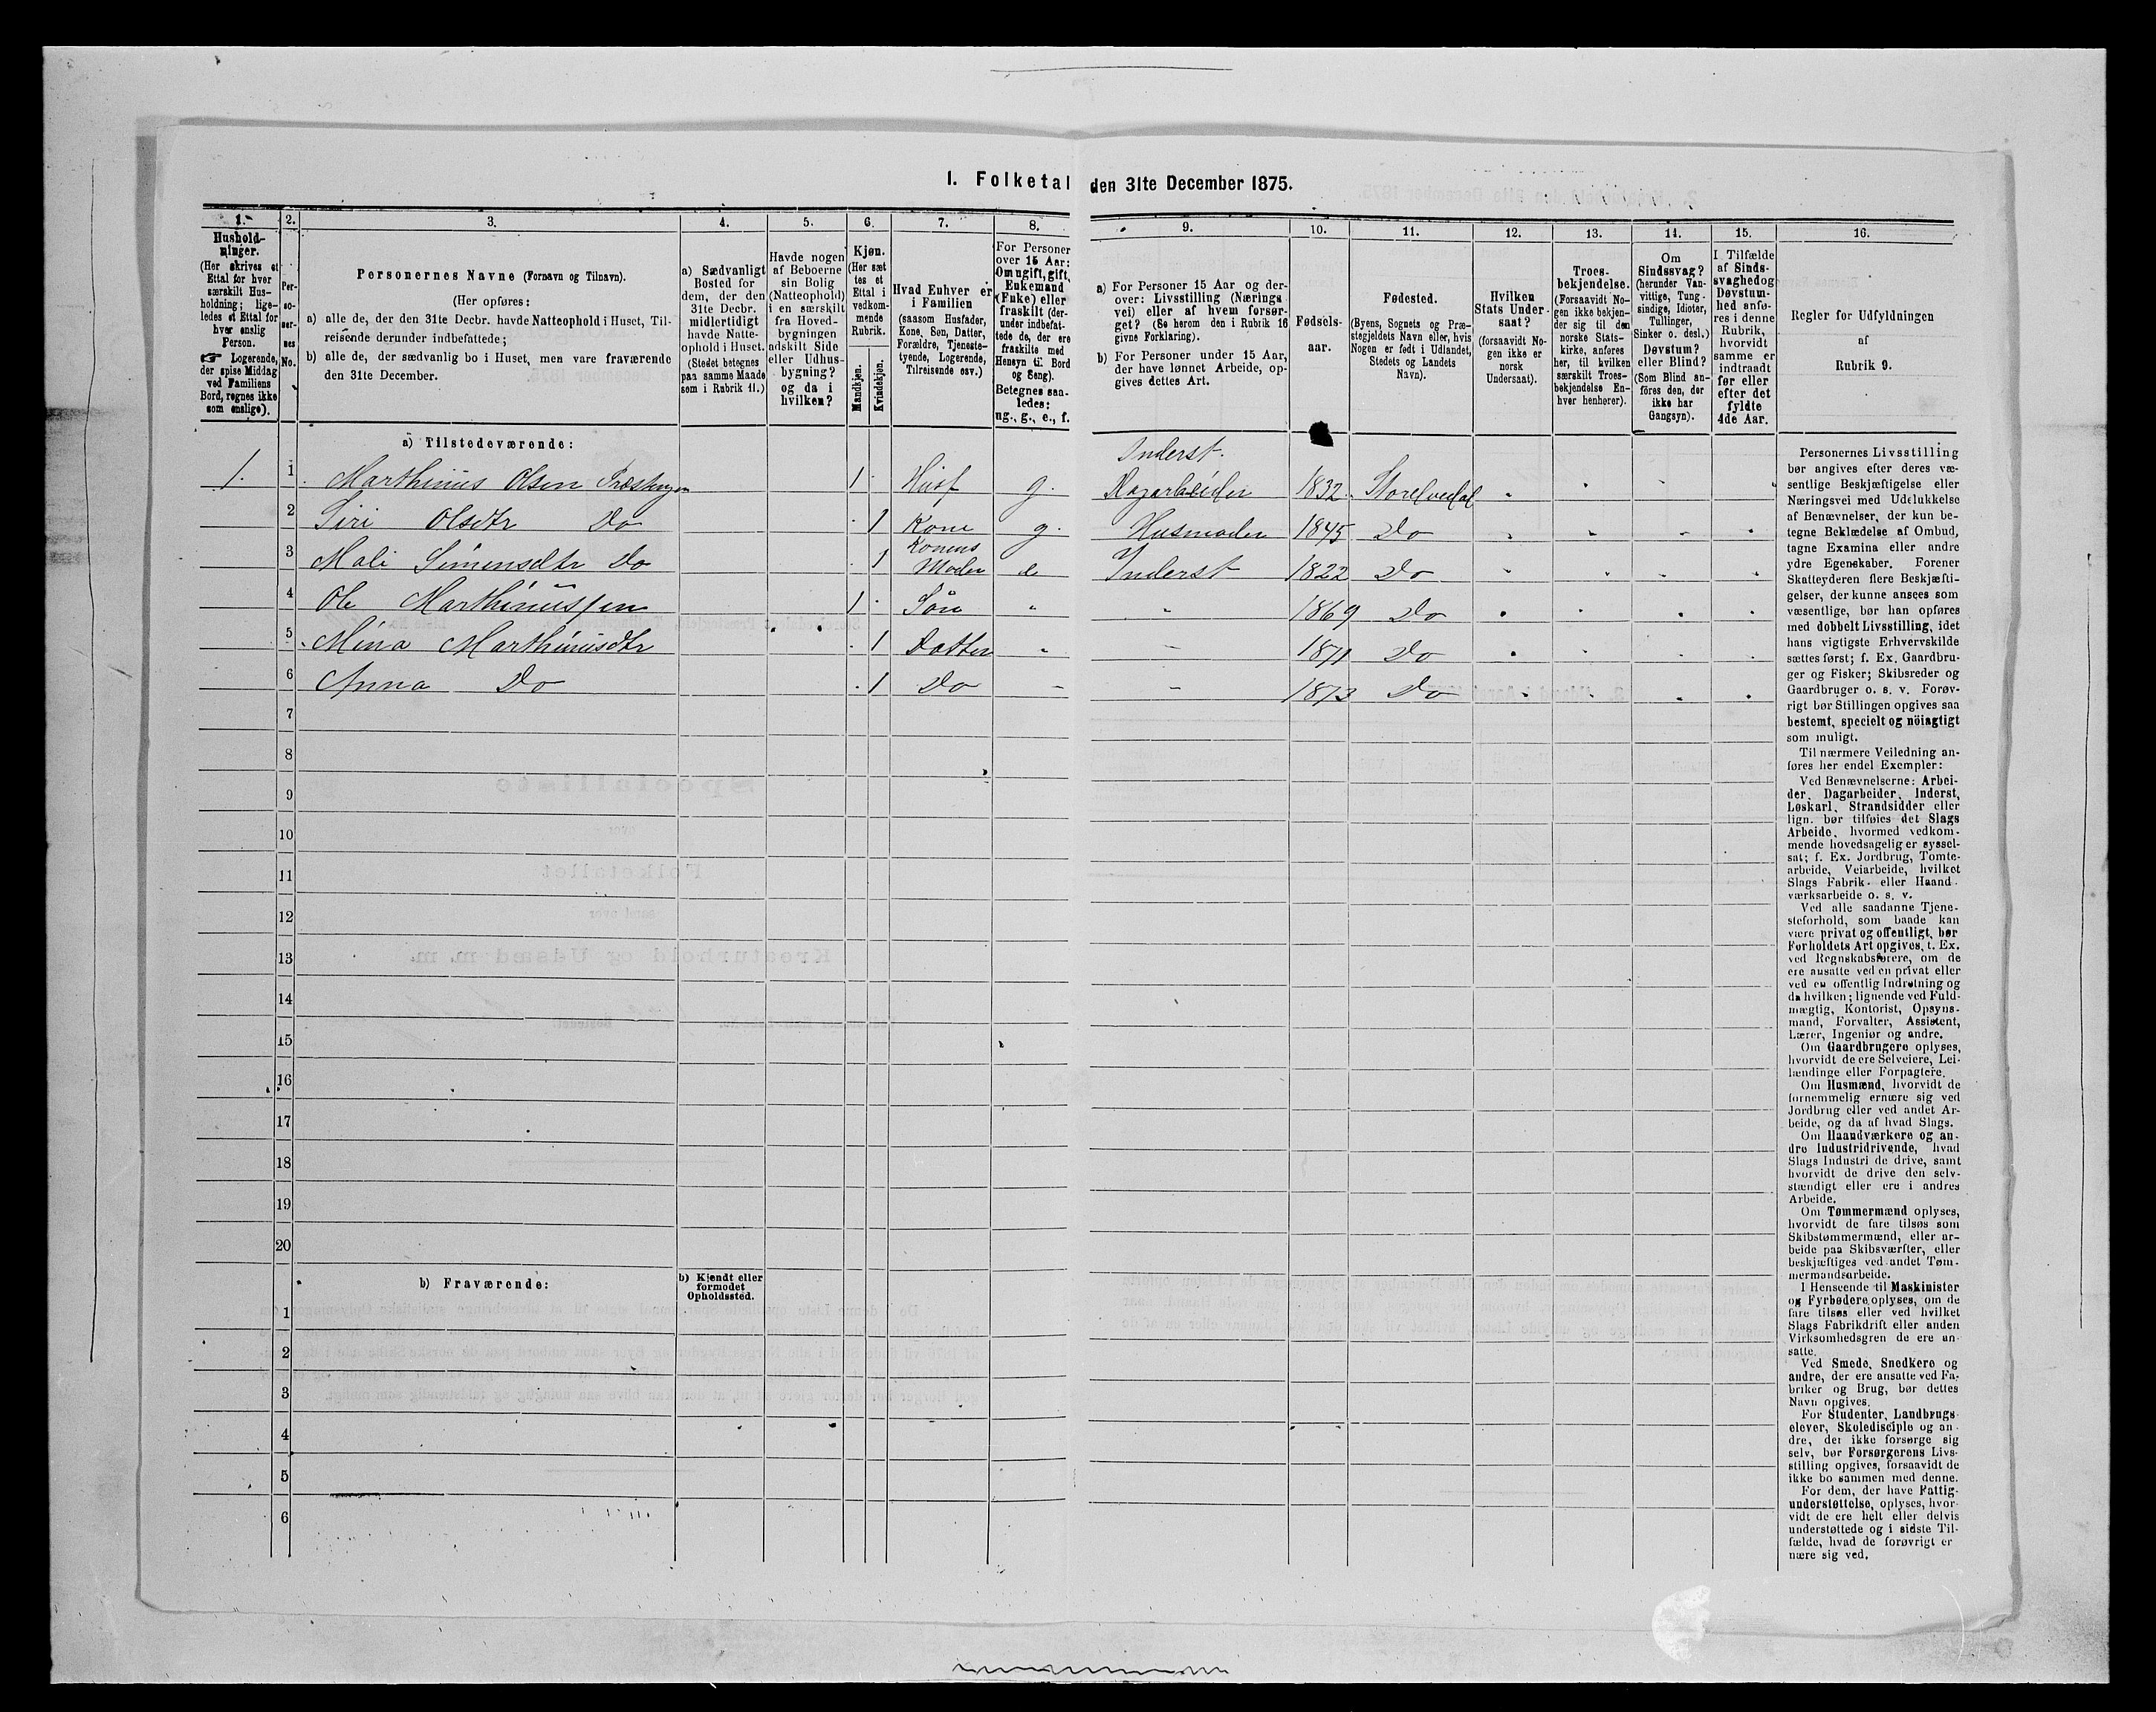 I. Folketal den 31te December 1875.
1. 2. 3. 4. 5. 6. 7. 8. 9. 10. 11. 12. 13. 14. 15. 16.
Hushold-
ninger.
(Her skrives et
Ettal for hver
særskilt Hus-
holdning; lige-
ledes et Ettal for
hver enslig
Person.
☞ Logerende,
der spise Middag
ved Familiens
Bord, regnes ikke
som enslige).
Per-
so-
ner-
nes
No.
Personernes Navne (Fornavn og Tilnavn).
(Her opføres:
a) alle de, der den 31te Decbr. havde Natteophold i Huset, Til-
reisende derunder indbefattede;
b) alle de, der sædvanlig bo i Huset, men vare fraværende
den 31te December.
a) Sædvanligt
Bosted for
dem, der den
31te Decbr.
midlertidigt
havde Natte-
ophold i Huset.
(Stedet betegnes
paa samme Maade
som i Rubrik 11.)
Havde nogen
af Beboerne
sin Bolig
(Natteophold)
i en særskilt
fra Hoved-
bygningen
adskilt Side
eller Udhus-
bygning?
og da i
hvilken?
Kjøn.
(Her sæt
tes et
Ettal i
vedkom-
mende
Rubrik.
Mandkjøn.
Kvindekjøn.
Hvad Enhver er
i Familien
(saasom Husfader,
Kone, Søn, Datter,
Forældre, Tjeneste-
tyende, Logerende,
Tilreisende osv.)
For Personer
over 15 Aar:
Om ugift, gift,
Enkemand
(Enke) eller
fraskilt (der-
under indbefat-
tede de, der ere
fraskilte med
Hensyn til Bord
og Seng).
Betegnes saa-
ledes:
ug., g., e., f.
a) For Personer 15 Aar og der-
over: Livsstilling (Nærings
vei) eller af hvem forsør-
get? (Se herom den i Rubrik 16
givne Forklaring).
b) For Personer under 15 Aar,
der have lønnet Arbeide, op-
gives dettes Art.
Fødsels-
aar.
Fødested.
(Byens, Sognets og Præ-
stegjeldets Navn eller, hvis
Nogen er født i Udlandet,
Stedets og Landets
Navn).
Hvilken
Stats Under-
saat?
(forsaavidt No-
gen ikke er
norsk
Undersaat).
Troes-
bekjendelse.
(Forsaavidt No-
gen ikke bekjen-
der sig til den
norske Stats-
kirke, anføres
her, til hvilken
særskilt Troes-
bekjendelse En-
hver henhører).
Om
Sindssvag?
(herunder Van-
vittige, Tung-
sindige, Idioter,
Tullinger,
Sinker o. desl.)
Døvstum?
eller Blind?
(Som Blind an-
føres den, der
ikke har
Gangsyn).
I Tilfælde
af Sinds-
svaghed og
Døvstum-
hed anfø-
res i denne
Rubrik,
hvorvidt
samme er
indtraadt
før eller
efter det
fyldte
4de Aar.
Regler for Udfyldningen
af
Rubrik 9.
a) Tilstedeværende:
Inderst.
1. 1 Marthinus Olsen Præstengen 1 Husf g. Dagarbeider 1832 Storelvedal
2 Siri Olsdtr Do 1 Kone g. Husmoder 1845 Do
3 Mali Simensdtr Do 1 Konens Moder e Inderst 1822 Do
4 Ole Marthinussen 1 Søn " " 1869 Do
5 Mina Marthinusdtr 1 Datter " " 1871 Do
6 Anna Do 1 Do " " 1873 Do
7
8
9
10
11
12
13
14
15
16
17
18
19
20
b) Fraværende:
b) Kjendt eller
formodet
Opholdssted.
1
2
3
4
5
6
Personernes Livsstilling
bør angives efter deres væ-
sentlige Beskjæftigelse eller
Næringsvei med Udelukkelse
af Benævnelser, der kun be-
tegne Beklædelse af Ombud,
tagne Examina eller andre
ydre Egenskaber. Forener
Skatteyderen flere Beskjæfti-
gelser, der kunne ansees som
væsentlige, bør han opføres
med dobbelt Livsstilling, idet
hans vigtigste Erhvervskilde
sættes først; f. Ex. Gaardbru-
ger og Fisker; Skibsreder og
Gaardbruger o. s. v. Forøv-
rigt bør Stillingen opgives saa
bestemt, specielt og nöiagtigt
som muligt.
Til nærmere Veiledning an-
føres her endel Exempler:
Ved Benævnelserne: Arbei-
der, Dagarbeider, Inderst,
Løskarl, Strandsidder eller
lign. bør tilføies det Slags
Arbeide, hvormed vedkom-
mende hovedsagelig er syssel-
sat; f. Ex. Jordbrug, Tomte-
arbeide, Veiarbeide, hvilket
Slags Fabrik- eller Haand-
værksarbeide o. s. v.
Ved alle saadanne Tjene-
steforhold, som baade kan
være privat og offentligt, bør
Forholdets Art opgives, t. Ex.
ved Regnskabsførere, om de
ere ansatte ved en privat eller
ved en offentlig Indretning og
da hvilken; lignende ved Fuld-
mægtig, Kontorist, Opsyns-
mand, Forvalter, Assistent,
Lærer, Ingeniør og andre.
Om Gaardbrugere oplyses,
hvorvidt de ere Selveiere, Lei-
lændinge eller Forpagtere.
Om Husmænd, hvorvidt de
fornemmelig ernære sig ved
Jordbrug eller ved andet Ar-
beide, og da af hvad Slags.
Om Haandværkere og an-
dre Industridrivende, hvad
Slags Industri de drive, samt
hvorvidt de drive den selv-
stændigt eller ere i andres
Arbeide.
Om Tømmermænd oplyses,
hvorvidt de fare tilsøs som
Skibstømmermænd, eller ar-
beide paa Skibsværfter, eller
beskjæftiges ved andet Tøm-
mermandsarbeide.
I Henseende til Maskinister
og Fyrbødere oplyses, om de
fare tilsøs eller ved hvilket
Slags Fabrikdrift eller anden
Virksomhedsgren de ere an-
satte.
Ved Smede, Snedkere og
andre, der ere ansatte ved Fa-
briker og Brug, bør dettes
Navn opgives.
For Studenter, Landbrugs-
elever, Skoledisciple og an-
dre, der ikke forsørge sig
selv, bør Forsørgerens Livs-
stilling opgives, forsaavidt de
ikke bo sammen med denne.
For dem, der have Fattig-
understøttelse, oplyses, hvor-
vidt de ere helt eller delvis
understøttede og i sidste Til-
fælde, hvad de forøvrigt er
nære sig ved.